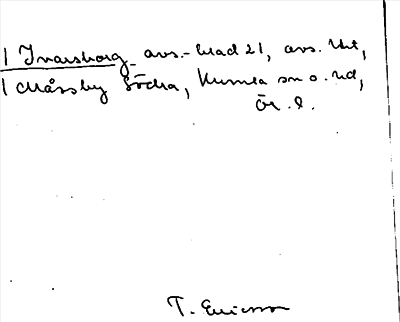 | Ivarsborg avs.-blad 21, avs. Utt,
| Måssby Södra, Kumla sn o. hd,
Ör. l.
T. Ericsson